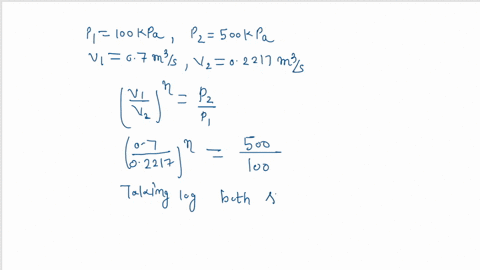 P₁ = 100 kPa , P₂ = 500 kPa
V₁ = 0.7 m³/s , V₂ = 0.2217 m³/s
(V₁/V₂)ⁿ = P₂/P₁
(0.7/0.2217)ⁿ = 500/100
Taking log both s